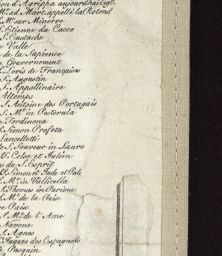 ion d'Agrippa aujourdhui Egl.
M.ᵉ ad Mart. appellé la Rotond
S. M.ᵉ sur Minerve
S. Etienne du Cacco
S. Eustache
Valle
de la Sapience
Gouvernement
S. Louis de Françaises
S. Augustin
S. Appollinaire
Altemps
S. Antoine des Portugais
S. M.ᵉ in Pasterola
Ferdinona
S. Simon Profeta
Lancellotti
S. Sauveur in Lauro
S. Celse et Julien
du S. Esprit
S. Simon et Jude et Pal.
S. M.ᵉ in Vallicella
S. Thomas in Parione
S. M.ᵉ de la Paix
Paix
S. M.ᵉ de l'Ame
Navone
S. Agnes
S. Jaques des Espagnols
de Pasquin